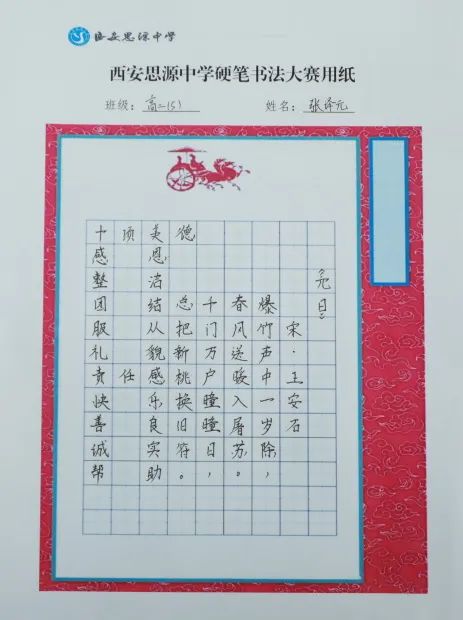 西安思源中学
西安思源中学硬笔书法大赛用纸
班级：高二(5)
姓名：张泽元
《元日》
宋·王安石
爆竹声中一岁除，
春风送暖入屠苏。
千门万户瞳瞳日，
总把新桃换旧符。
十项美德
感恩
整洁
团结
服从
礼貌
责任感
快乐
善良
诚实
帮助